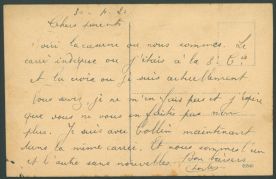 30-4-2
Chers parents
voici la caserne où nous sommes. Le
carré indique où j'étais à la 8. Cie
et la croix où je suis actuellement
vous savez je ne m'en fais pas et j'espère
que vous ne vous en faites pas non
plus. Je suis avec maintenant
dans la même carrée. Et nous sommes l'un
et l'autre sans nouvelles. Bon baisers
Charles